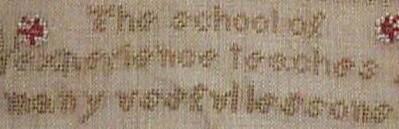 The school of
experience teaches
many useful lessons